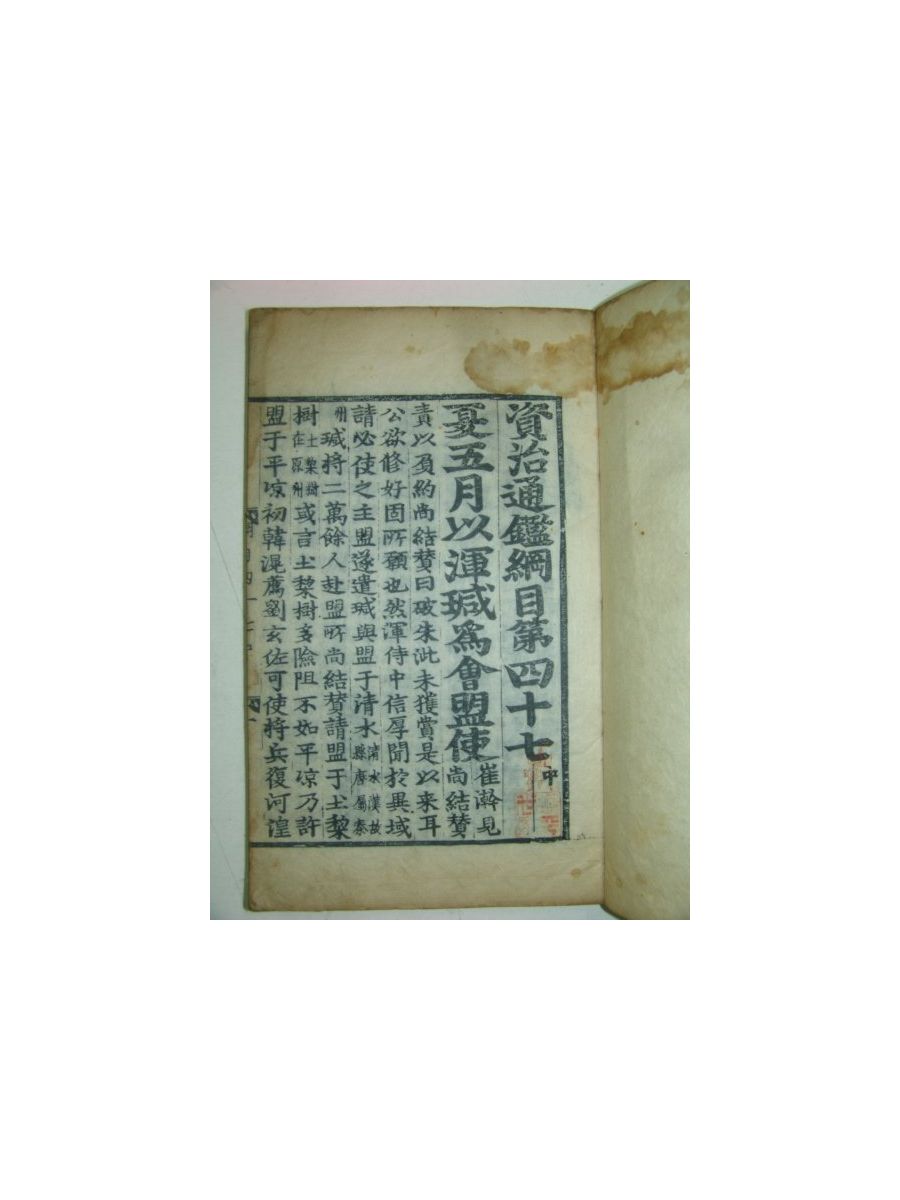 資治通鑑綱目第四十七中
夏五月以渾瑊爲會盟使崔澣見尚結贊
責以負約尚結贊曰破朱泚未獲賞是以来耳
公欲修好固所願也然渾侍中信厚聞於異域
請必使之主盟遂遣瑊與盟于清水清水漢故縣唐屬秦
州瑊將二萬餘人赴盟所尚結贊請盟于土黎
樹土黎樹在原州或言土黎樹多險阻不如平凉乃許
盟于平凉初韓滉薦劉玄佐可使將兵復河湟